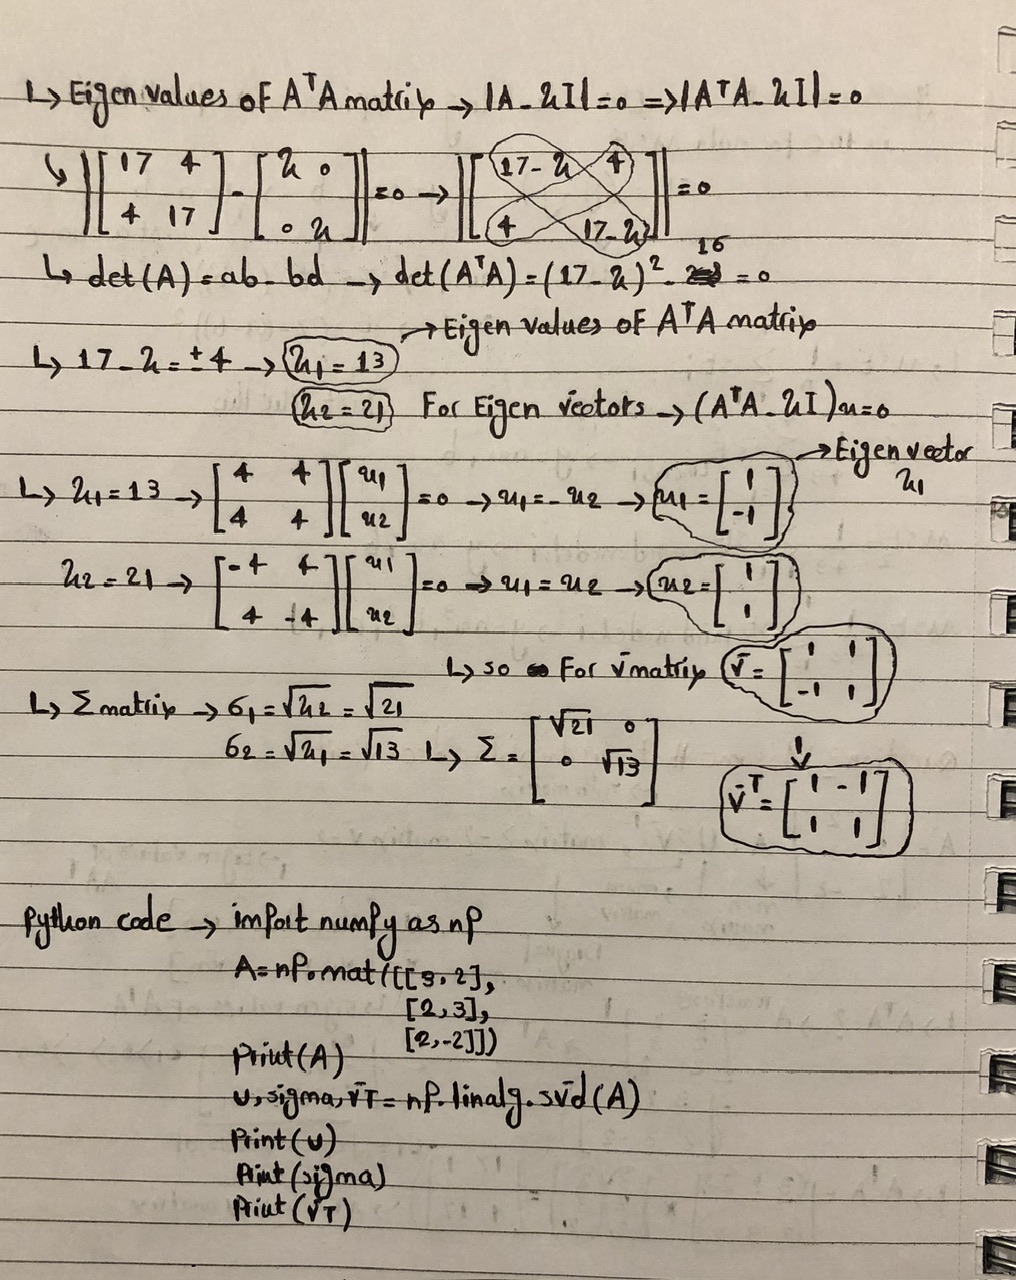 ↳ Eigen values of AᵀA matrix → |A - λI| = 0 ⇒ |AᵀA - λI| = 0
↳ |[17 4; 4 17] - [λ 0; 0 λ]| = 0 → |[17-λ 4; 4 17-λ]| = 0
↳ det(A) = ab - bd → det(AᵀA) = (17-λ)² - 16 = 0
→ Eigen values of AᵀA matrix
↳ 17-λ = ±4 → λ₁ = 13
λ₂ = 21 For Eigen vectors → (AᵀA - λI)u = 0
→ Eigen vector λ₁
↳ λ₁ = 13 → [4 4; 4 4] [u1; u2] = 0 → u1 = -u2 → u1 = [1; -1]
λ₂ = 21 → [-4 4; 4 -4] [u1; u2] = 0 → u1 = u2 → u2 = [1; 1]
↳ so For v matrix v = [1 1; -1 1]
↳ Σ matrix → σ₁ = √λ₂ = √21
σ₂ = √λ₁ = √13 ↳ Σ = [√21 0; 0 √13]
↓
vᵀ = [1 -1; 1 1]
Python code → import numpy as np
A = np.mat([[3, 2],
[2, 3],
[2, -2]])
Print(A)
u, sigma, vT = np.linalg.svd(A)
Print(u)
Print(sigma)
Print(vT)